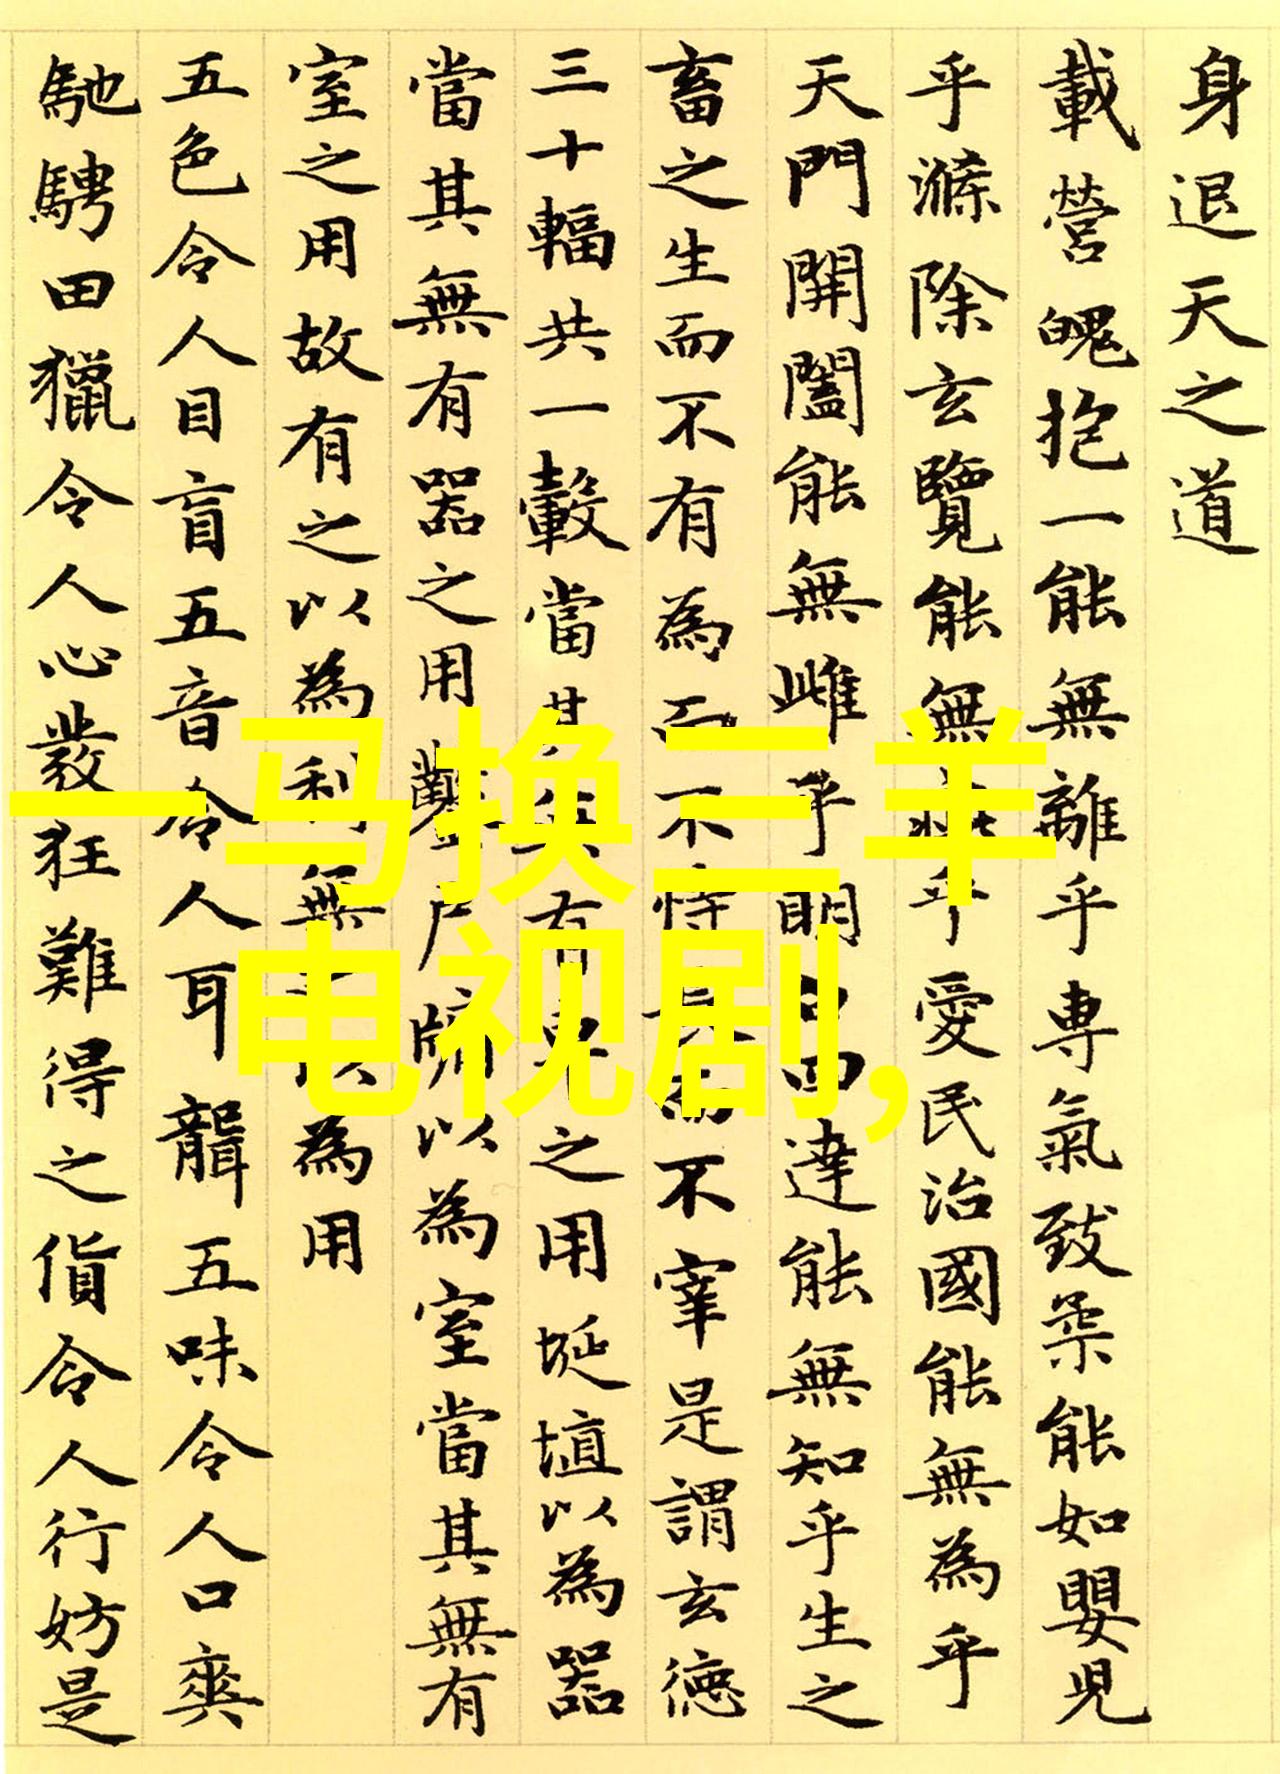 身退天之道
載營魄抱一能無離乎專氣致柔能如嬰児
乎滌除玄覽能無疵乎愛民治國能無為乎
天門開闔能無雌乎明白四達能無知乎生之
畜之生而不有為而不恃長而不宰是謂玄德
三十輻共一轂當其無有車之用埏埴以為器
當其無有器之用鑿戶牖以為室當其無有
室之用故有之以為利無之以為用
五色令人目盲五音令人耳聾五味令人口爽
馳騁田獵令人心發狂難得之貨令人行妨是
一马换三羊
电视剧,